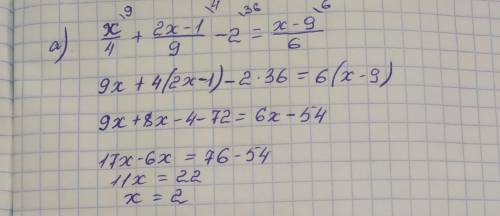 а) x/4 ⁹ + (2x-1)/9 ⁴ - 2 ³⁶ = (x-9)/6 ⁶
9x + 4(2x-1) - 2·36 = 6(x-9)
9x + 8x - 4 - 72 = 6x - 54
17x - 6x = 76 - 54
11x = 22
x = 2